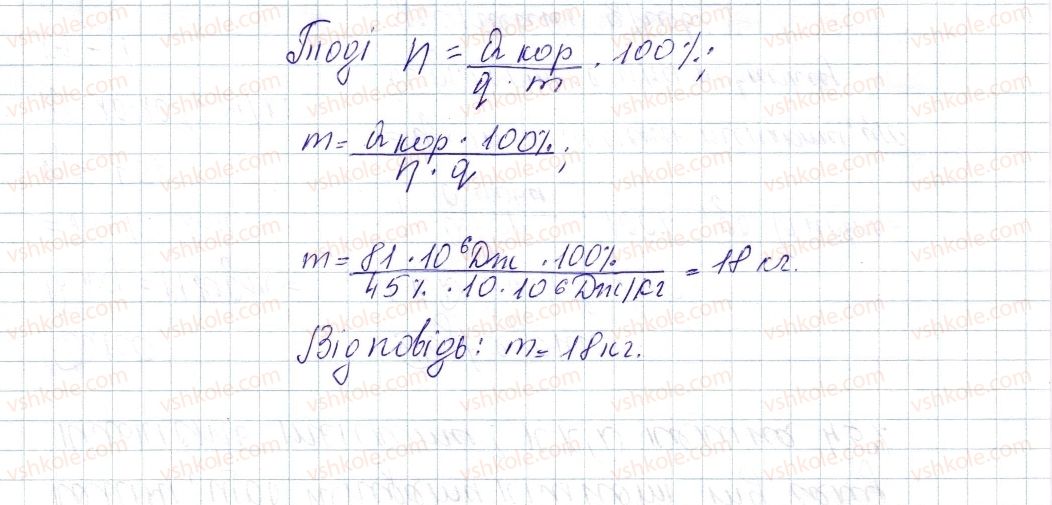 Тоді η = Qкор / (q · m) · 100%;
m = Qкор · 100% / (η · q);
m = 81 · 10⁶ Дж · 100% / (45% · 10 · 10⁶ Дж/кг) = 18 кг.
Відповідь: m = 18 кг.